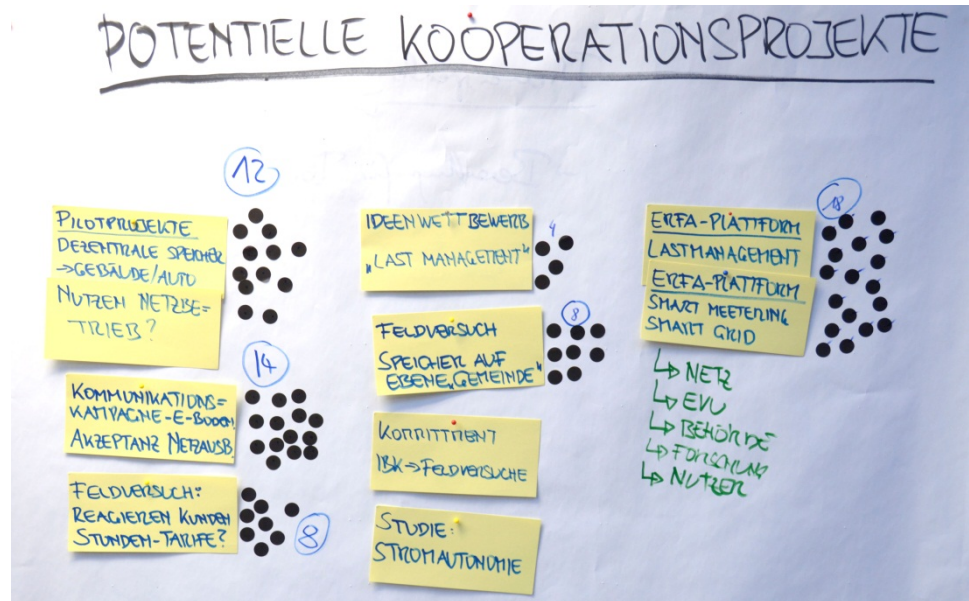 POTENTIELLE KOOPERATIONSPROJEKTE
12
PILOTPROJEKTE
DEZENTRALE SPEICHER
→GEBÄUDE/AUTO
NUTZEN NETZBE=
TRIEB?
14
KOMMUNIKATIONS=
KAMPAGNE-E-BODEN
AKZEPTANZ NETZAUSB.
FELDVERSUCH:
REAGIEREN KUNDEN
STUNDEN-TARIFE?
8
IDEENWETTBEWERB
„LAST MANAGEMENT"
4
FELDVERSUCH
SPEICHER AUF
EBENE „GEMEINDE"
8
KOMMITTMENT
IBK→FELDVERSUCHE
STUDIE:
STROMAUTONOMIE
18
ERFA-PLATTFORM
LASTMANAGEMENT
ERFA-PLATTFORM
SMART MEETERING
SMART GRID
↳ NETZ
↳ EVU
↳ BEHÖRDE
↳ FORSCHUNG
↳ NUTZER